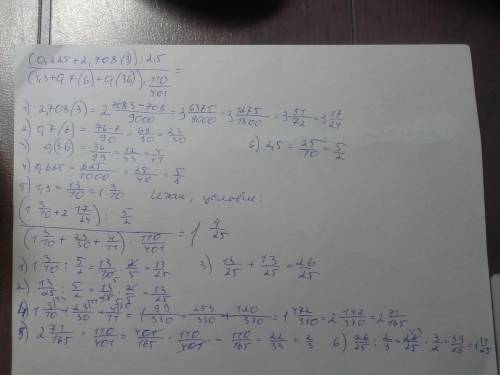 (0,625+2,708(3)):2,5
(1,3+0,7(6)+0,(36))·110/401 =
1) 2,708(3)=2 7083-708/9000=3 6375/9000=3 1275/1800=3 51/72=3 17/24
2) 0,7(6)=76-7/90=69/90=23/30
3) 0,(36)=36/99=12/33=4/11
6) 2,5=25/10=5/2
4) 0,625=625/1000=25/40=5/8
5) 1,3=13/10=1 3/10
Итак, условие:
(1 3/10+2 17/24):5/2
(1 3/10+23/30+4/11)·110/401 =1 4/25
1) 1 3/10:5/2=13/10·2/5=13/25
3) 13/25+13/25=26/25
2) 13/25:5/2=13/5·2/5=13/25
4) 1 3/10+23/30+4/11=1 99/330+253/330+120/330=1 472/330=2 142/330=2 71/165
5) 2 71/165·110/401=401/165·110/401=110/165=22/33=2/3
6) 26/25:2/3=26/25·3/2=39/25=1 14/25